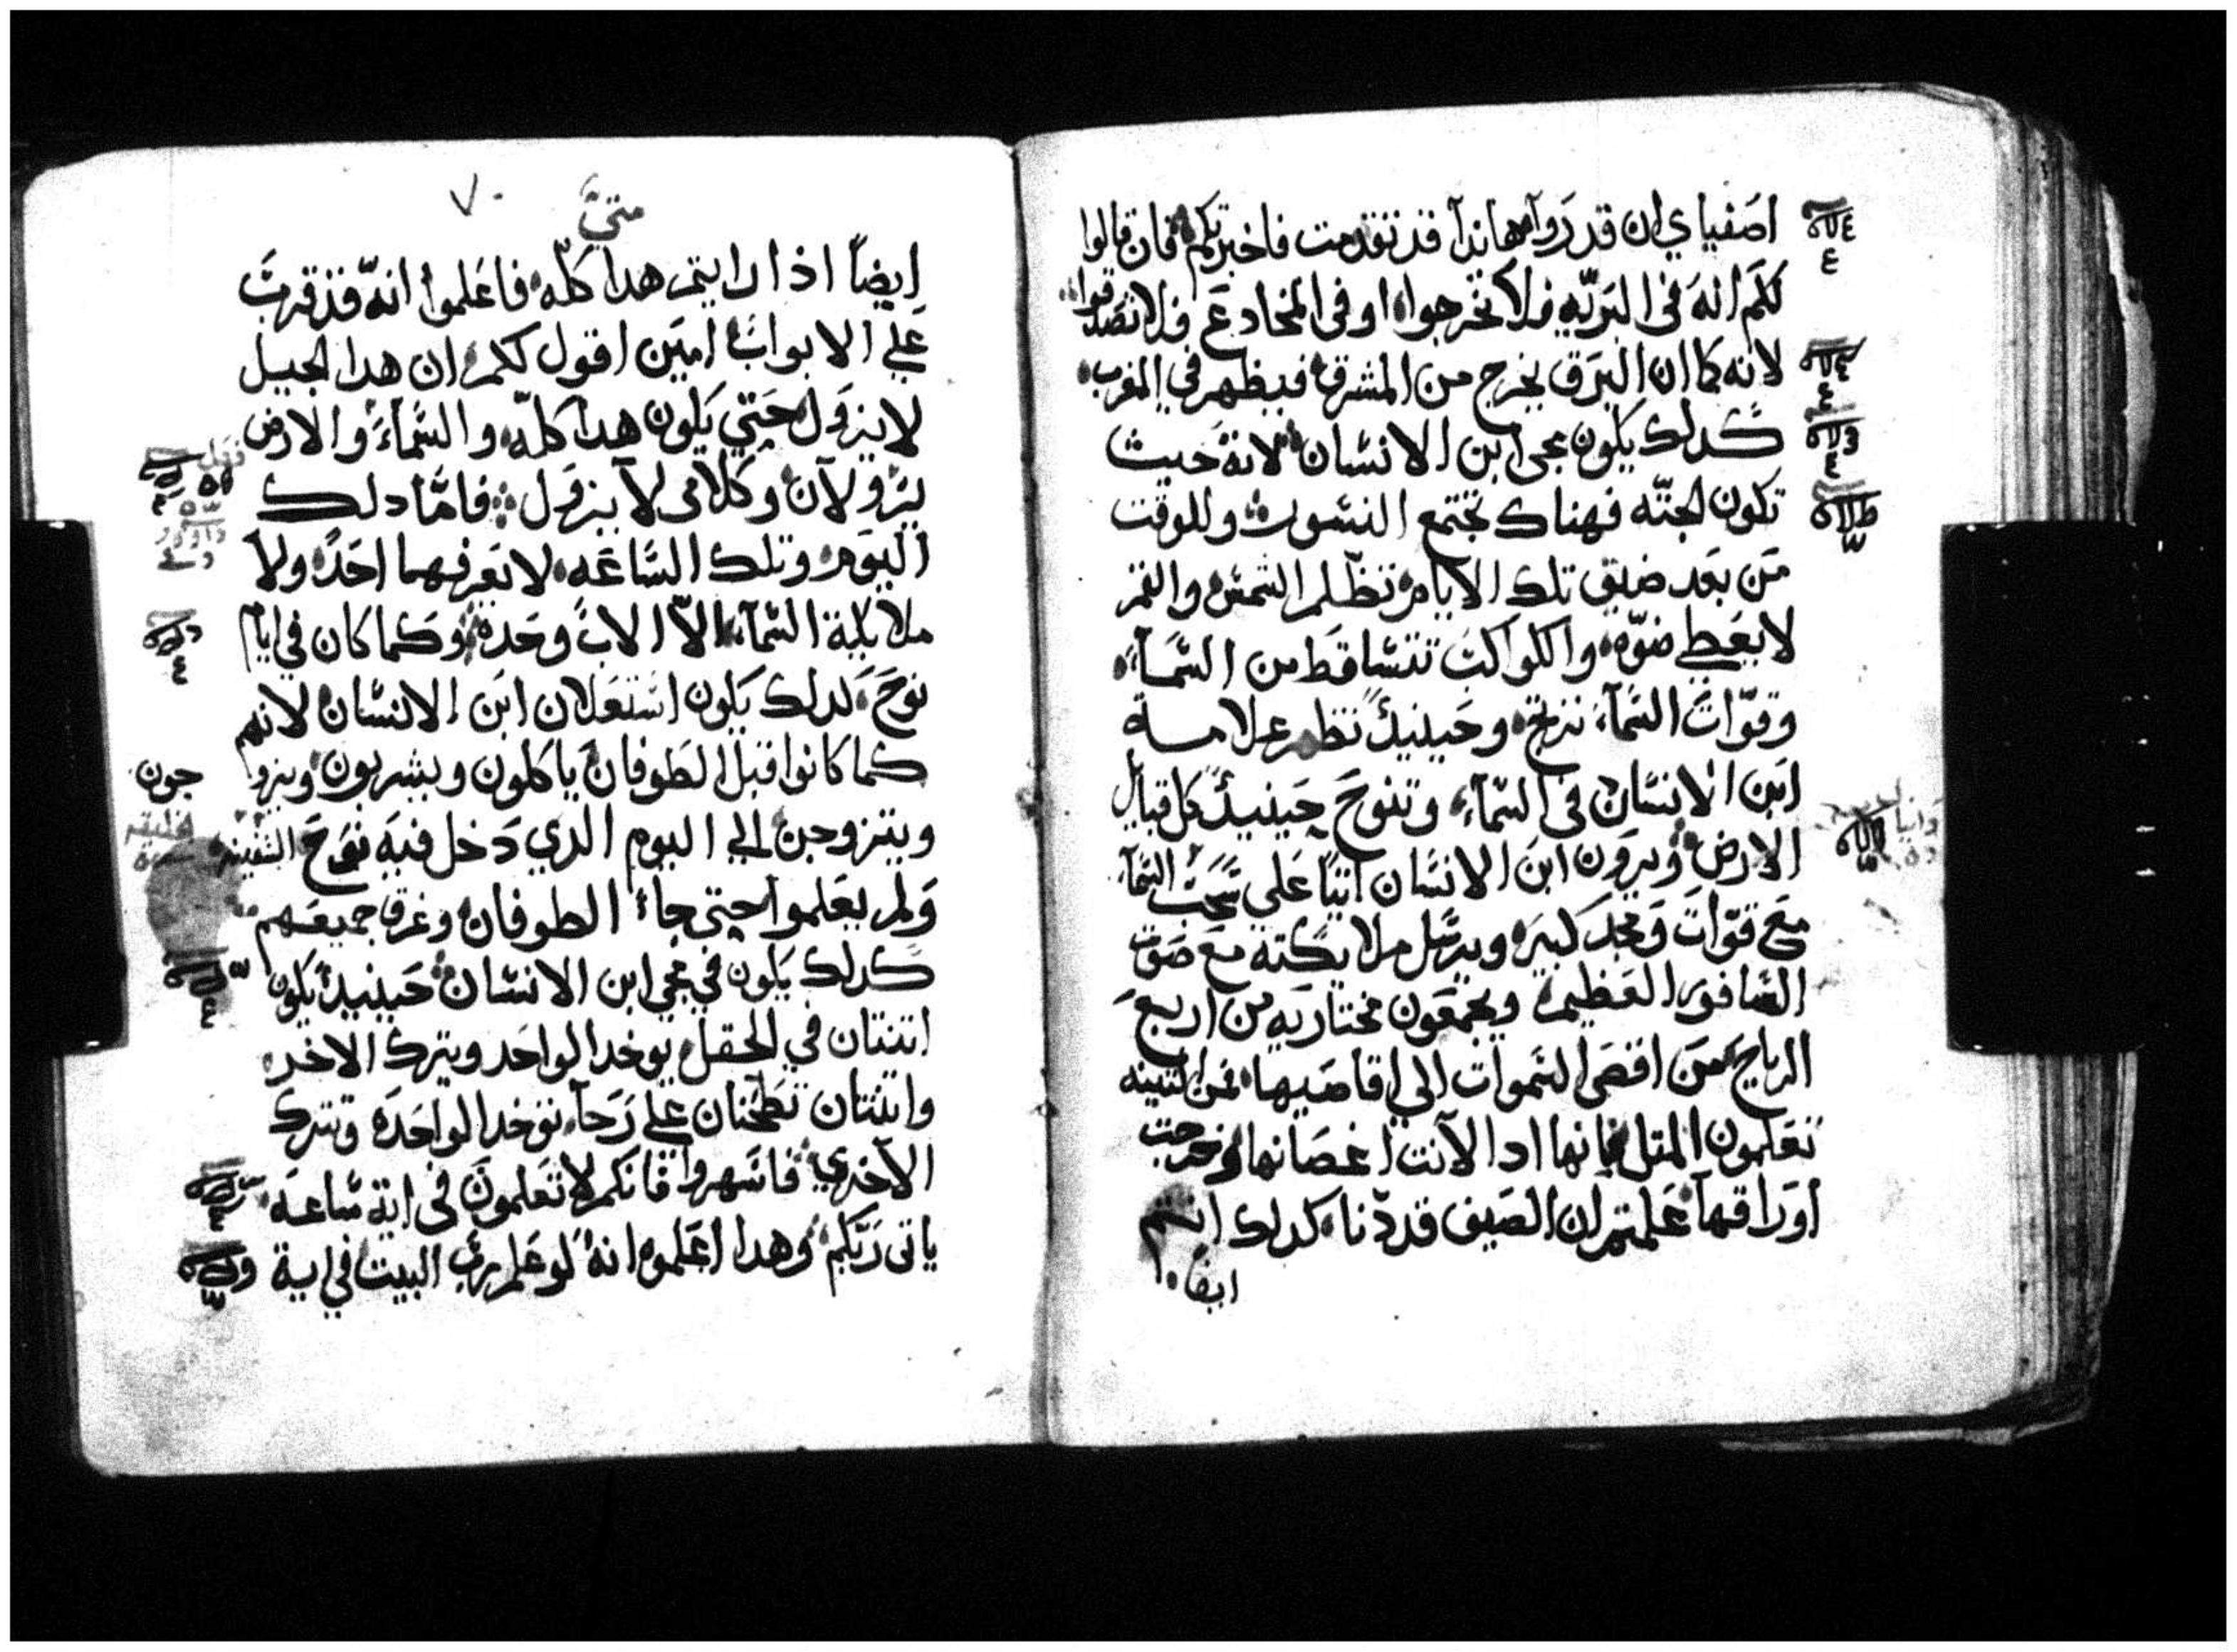 اصفياي ان قدروا هاندا قد تقدمت فاخبرتكم فان قالوا
لكم انه في البريه فلا تخرجوا او في المخادع فلا تصدقوا
لانه كما ان البرق يخرج من المشرق فيظهر في المغرب
كدلك يكون مجي ابن الانسان لانه حيث
تكون الجثه فهناك تجتمع النسور وللوقت
من بعد ضيق تلك الايام تظلم الشمس والقمر
لا يعطي ضوه والكواكب تتساقط من السمآء
وقوات السمآء ترتج وحينيد تظهر علامة
ابن الانسان في السمآء وتنوح حينيد كل قبايل
الارض ويرون ابن الانسان اتيا علي سحب السمآء
مع قوات ومجد كبير ويرسل ملايكته مع صوت
السافور العظيم ويجمعون مختاريه من اربع
الرياح من اقصى السموات الي اقاصيها فمن التينه
تعلمون المتل فانها ادا لانت اغصانها وخرجت
اوراقها علمتم ان الصيف قد دنا كدلك انتم
ايضا
متي
٧٠
ايضاً اذا رايتم هدا كله فاعلموا انه قد قرب
علي الابواب امين اقول لكم ان هدا الجيل
لا يزول حتي يكون هدا كله والسمآء والارض
يزولان وكلامي لا يزول فاما دلك
اليوم وتلك الساعه لا يعرفهما احد ولا
ملايكة السمآء الا الاب وحده وكما كان في ايام
نوح كدلك يكون استعلان ابن الانسان لانهم
كما كانوا قبل الطوفان ياكلون ويشربون ويزو
جون
ويتزوجن الي اليوم الدي دخل فيه نوح السفينه
ولم يعلموا حتي جاء الطوفان وغرق جميعهم
كدلك يكون في مجي ابن الانسان حينيد يكون
اتنتان في الحقل يوخد الواحد ويترك الاخر
واتنتان تطحنان علي رحآ توخد الواحده وتترك
الاخري فاسهروا فانكم لا تعلمون في اية ساعه
ياتي ربكم وهدا اعلموه انه لو علم رب البيت في اية